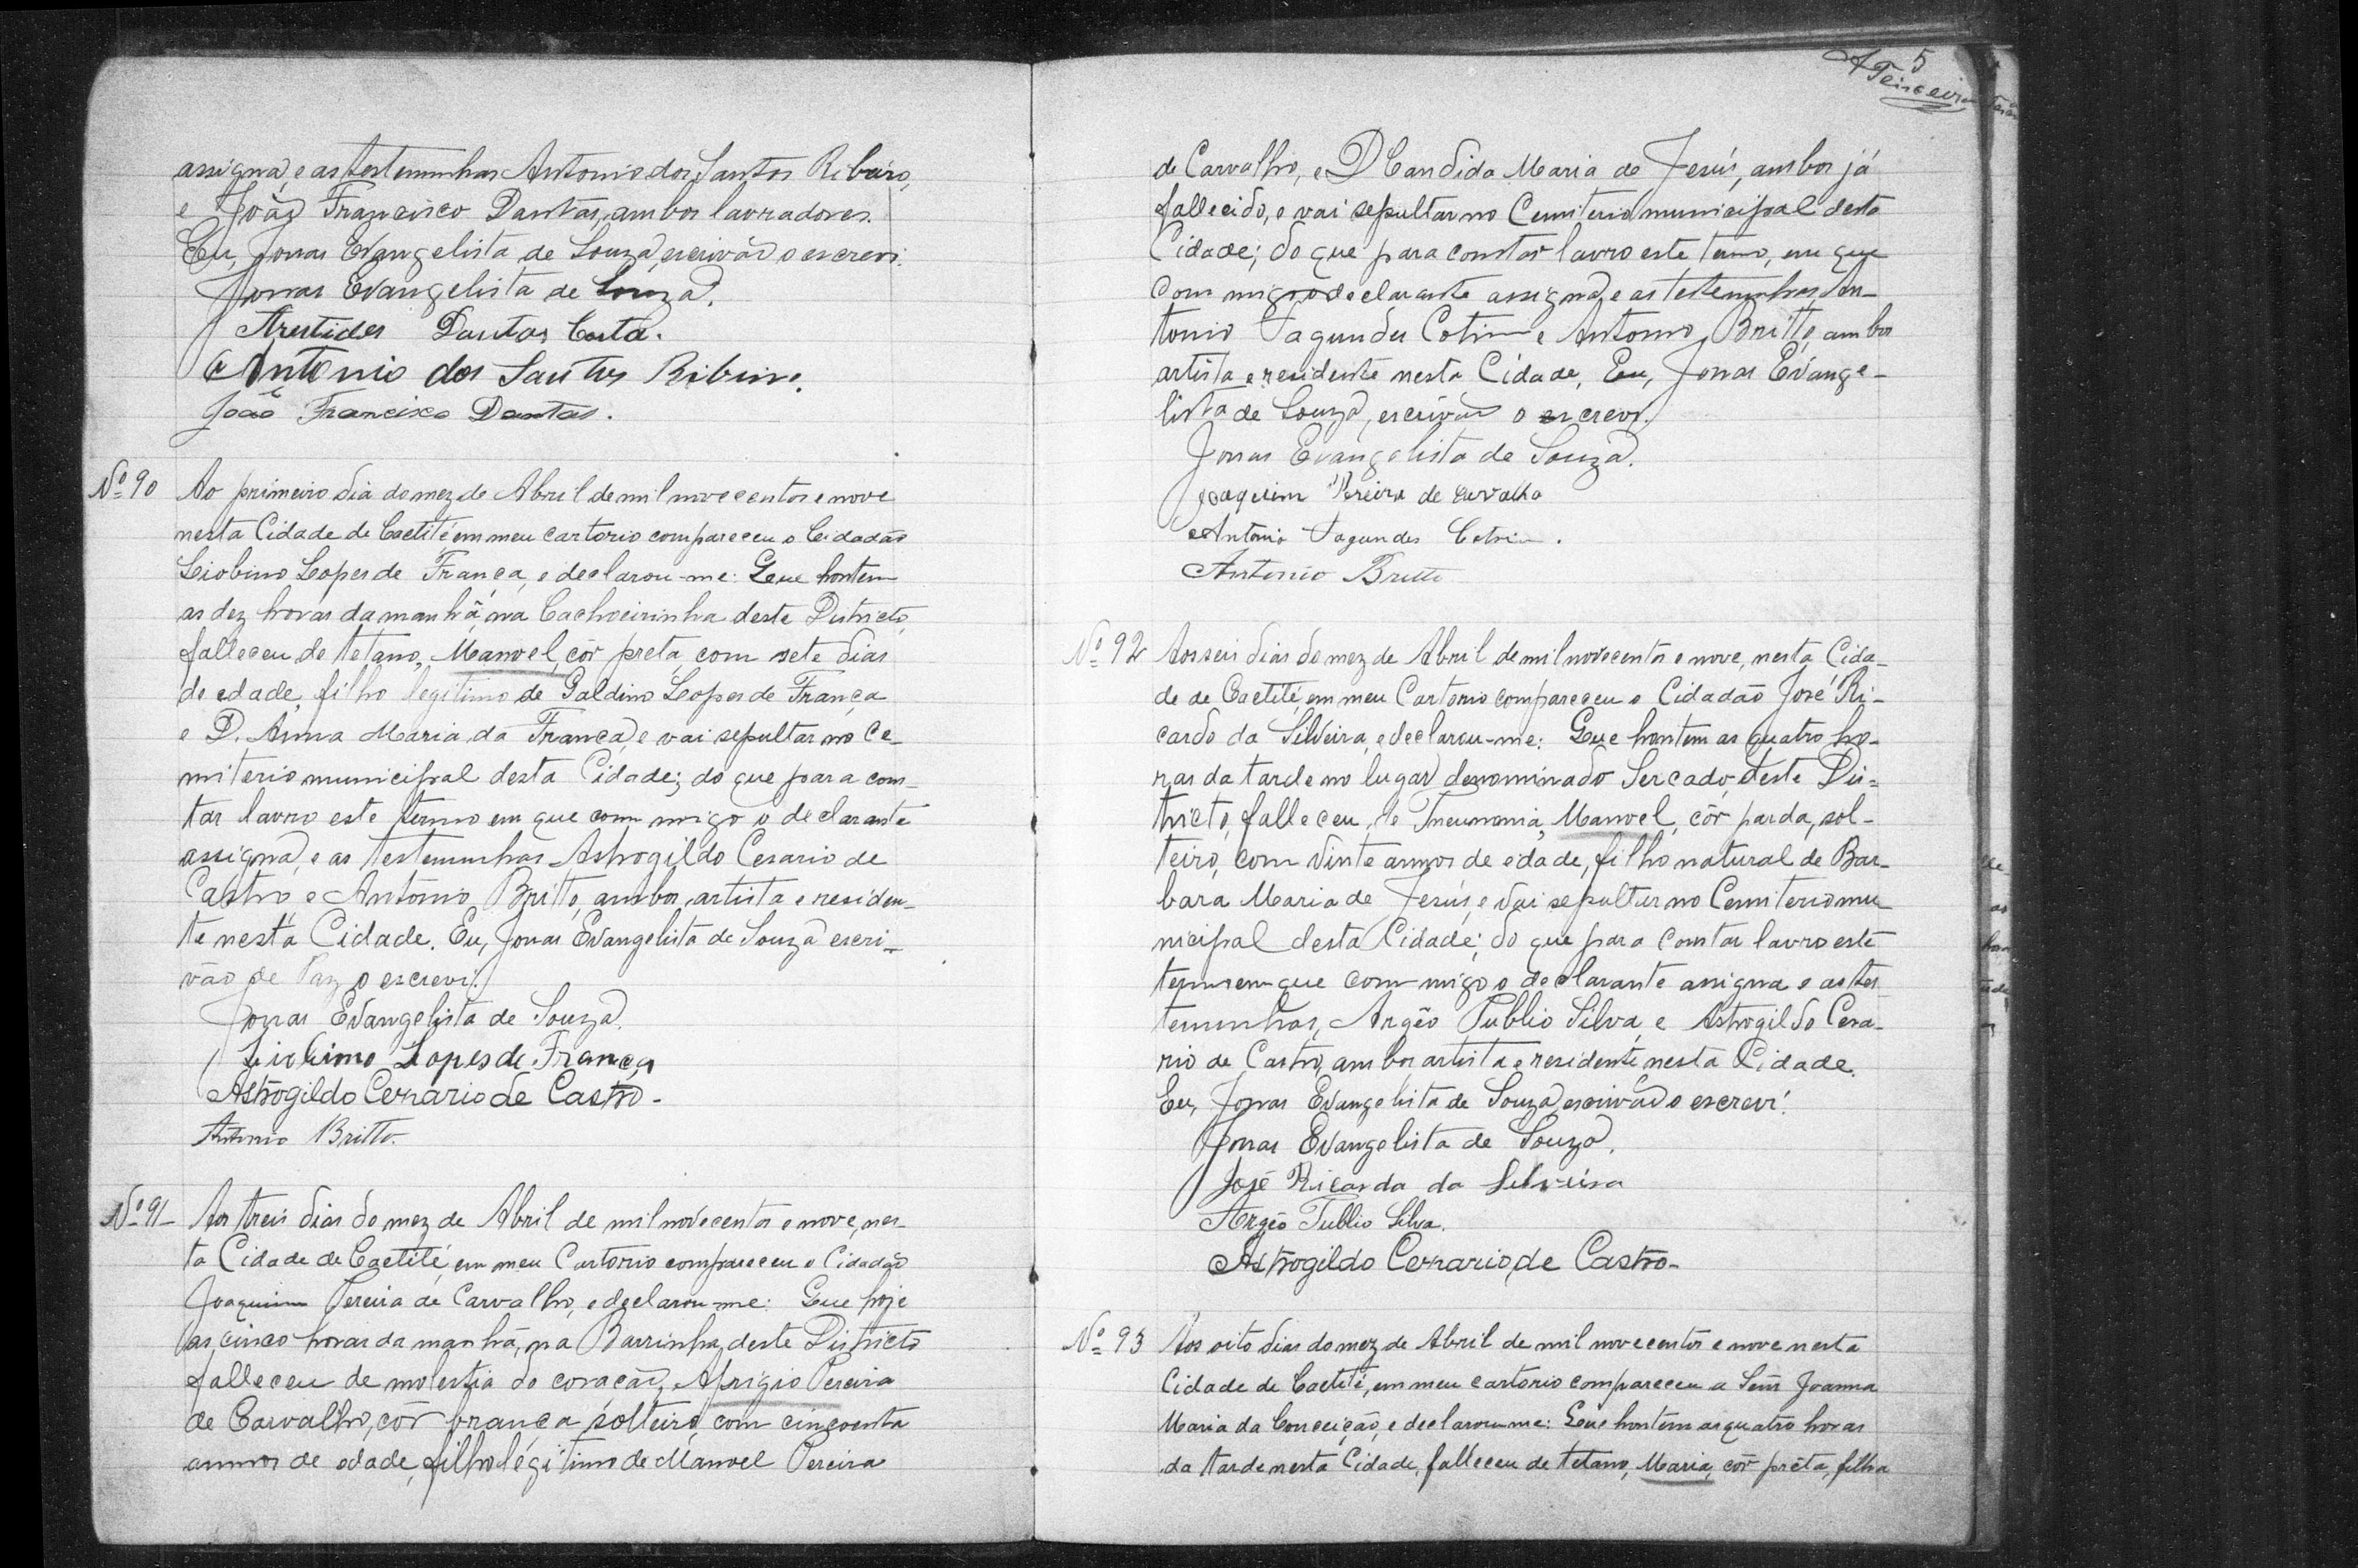 assigna, e as testemunhas Antonio dos Santos Ribeiro,
e João Francisco Dantas, ambos lavradores.
Eu, Jonas Evangelista de Souza, escrivão o escrevi.
Jonas Evangelista de Souza.
Arestides Dantas Costa.
Antonio dos Santos Ribeiro.
João Francisco Dantas.
Nº 90 Ao primeiro dia do mez de Abril de mil novecentos e nove
nesta Cidade de Caetité em meu cartorio compareceu o Cidadão
Liobino Lopes de França, e declarou-me: Que hontem
as dez horas da manhã, na Cachoeirinha deste Districto,
falleceu de tetano, Manoel, côr preta, com sete dias
de edade, filho legitimo de Galdino Lopes de França
e D. Anna Maria da França, e vai sepultar no Ce-
miterio municipal desta Cidade; do que para cons-
tar lavro este termo em que commigo o declarante
assigna, e as testemunhas Astrogildo Cesario de
Castro, e Antonio Britto, ambos artista e residen-
te nesta Cidade. Eu, Jonas Evangelista de Souza escri-
vão de Paz o escrevi.
Jonas Evangelista de Souza.
Liobino Lopes de França
Astrogildo Cerario de Castro-
Antonio Britto.
Nº 91 Aos treis dias do mez de Abril de mil novecentos e nove, nes-
ta Cidade de Caetité, em meu Cartorio compareceu o Cidadão
Joaquim Pereira de Carvalho, e declarou-me: Que hoje
as cinco horas da manhã, na Barrinha, deste Districto
falleceu de molestia do coração, Aprigio Pereira
de Carvalho, côr branca, solteiro, com cincoenta
annos de edade, filho légitimo de Manoel Pereira
5
A Teixeira
de Carvalho, e D Candida Maria de Jesús, ambos já
fallecido, e vai sepultar no Cemiterio municipal desta
Cidade; do que para constar lavro este termo, em que
commigo declarante assigna, e as testemunhas An-
tonio Fagundes Cotrim e Antonio Britto, ambos
artista e residente nesta Cidade, Eu, Jonas Evange-
lista de Souza, escrivão o escrevi.
Jonas Evangelista de Souza.
Joaquim Pereira de Carvalho
Antonio Fagundes Cotrim.
Antonio Britto
Nº 92 Aos seis dias do mez de Abril de mil novecentos e nove, nesta Cida-
de de Caetité, em meu Cartorio compareceu o Cidadão José Ri-
cardo da Silveira, e declarou-me: Que hontem as quatro ho-
ras da tarde no lugar denominado Sercado, deste Dis-
tricto, falleceu, de Pneumonia, Manoel, côr parda, sol-
teiro, com vinte annos de edade, filho natural de Bar-
bara Maria de Jesús, e vai sepultar no Cemiterio mu-
nicipal desta Cidade; do que para constar lavro este
termo em que commigo o declarante assigna e as tes-
temunhas, Argêo Publio Silva, e Astrogildo Cesa-
rio de Castro, ambos artista e residente nesta Cidade.
Eu, Jonas Evangelista de Souza, escrivão o escrevi.
Jonas Evangelista de Souza.
José Ricardo da Silveira
Argêo Publio Silva.
Astrogildo Cerario de Castro-
Nº 93 Aos oito dias do mez de Abril de mil novecentos e nove nesta
Cidade de Caetité, em meu cartorio compareceu a Senrª Joanna
Maria da Conceição, e declarou-me: Que hontem as quatro horas
da tarde nesta Cidade, falleceu de tetano, Maria, côr preta, filha